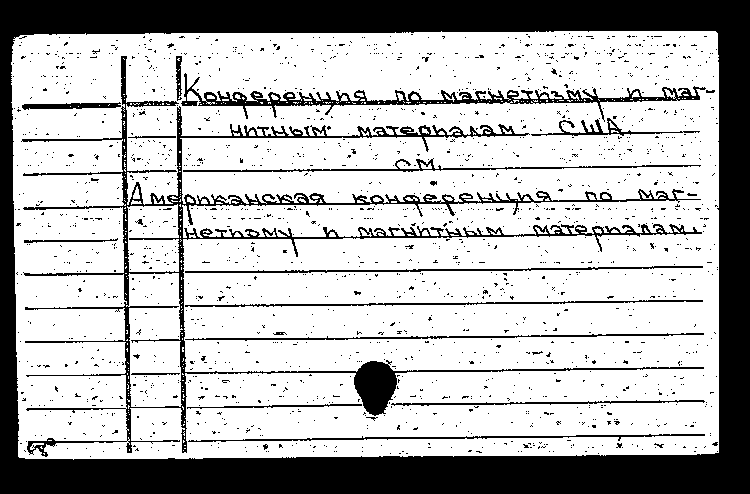 Конференция по магнетизму и маг-
нитным материалам. США.
см.
Американская конференция по маг-
нетизму и магнитным материалам.